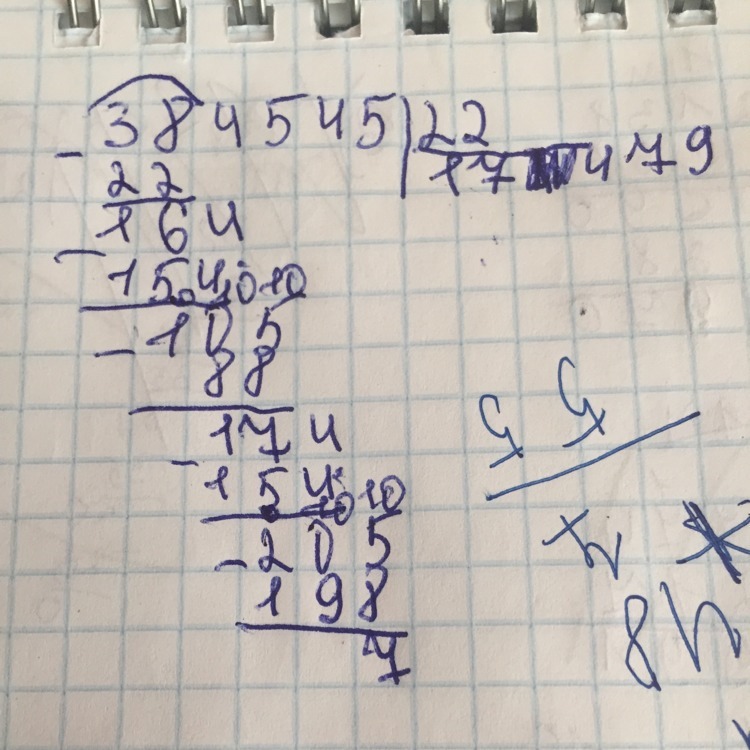 384545 22
22 17 479
164
154 10 10
105
88
174
154 10 10
205
198
7